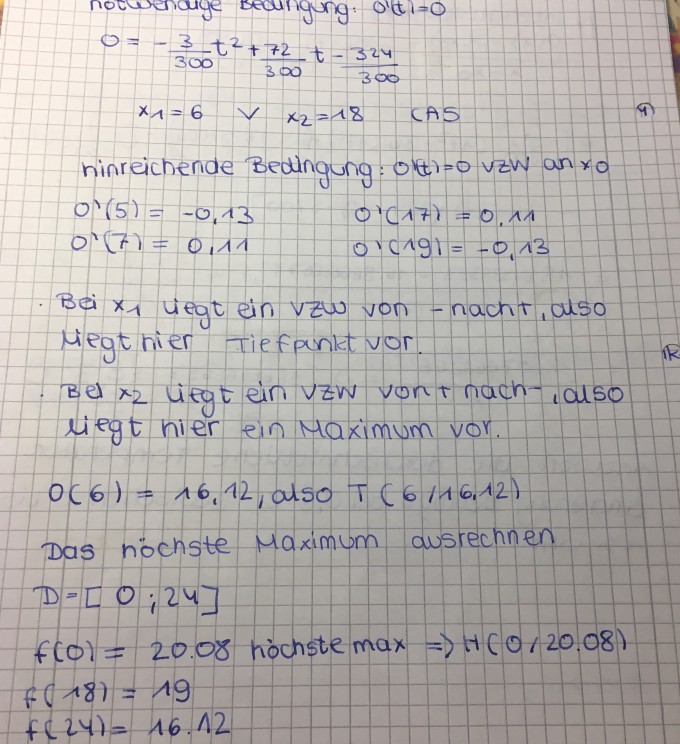 notwendige Bedingung: O'(t)=0
0 = - 3/300 t² + 72/300 t - 324/300
x1=6 ∨ x2=18 CAS
4)
hinreichende Bedingung: O'(t)=0 vzw an x0
O'(5) = -0,13 O'(17) = 0,11
O'(7) = 0,11 O'(19) = -0,13
. Bei x1 liegt ein vzw von - nach +, also
liegt hier Tiefpunkt vor.
. Bei x2 liegt ein vzw von + nach -, also
liegt hier ein Maximum vor.
O(6) = 16.12, also T (6/16.12)
Das höchste Maximum ausrechnen
D=[0;24]
f(0) = 20.08 höchste max => H(0/20.08)
f(18) = 19
f(24) = 16.12